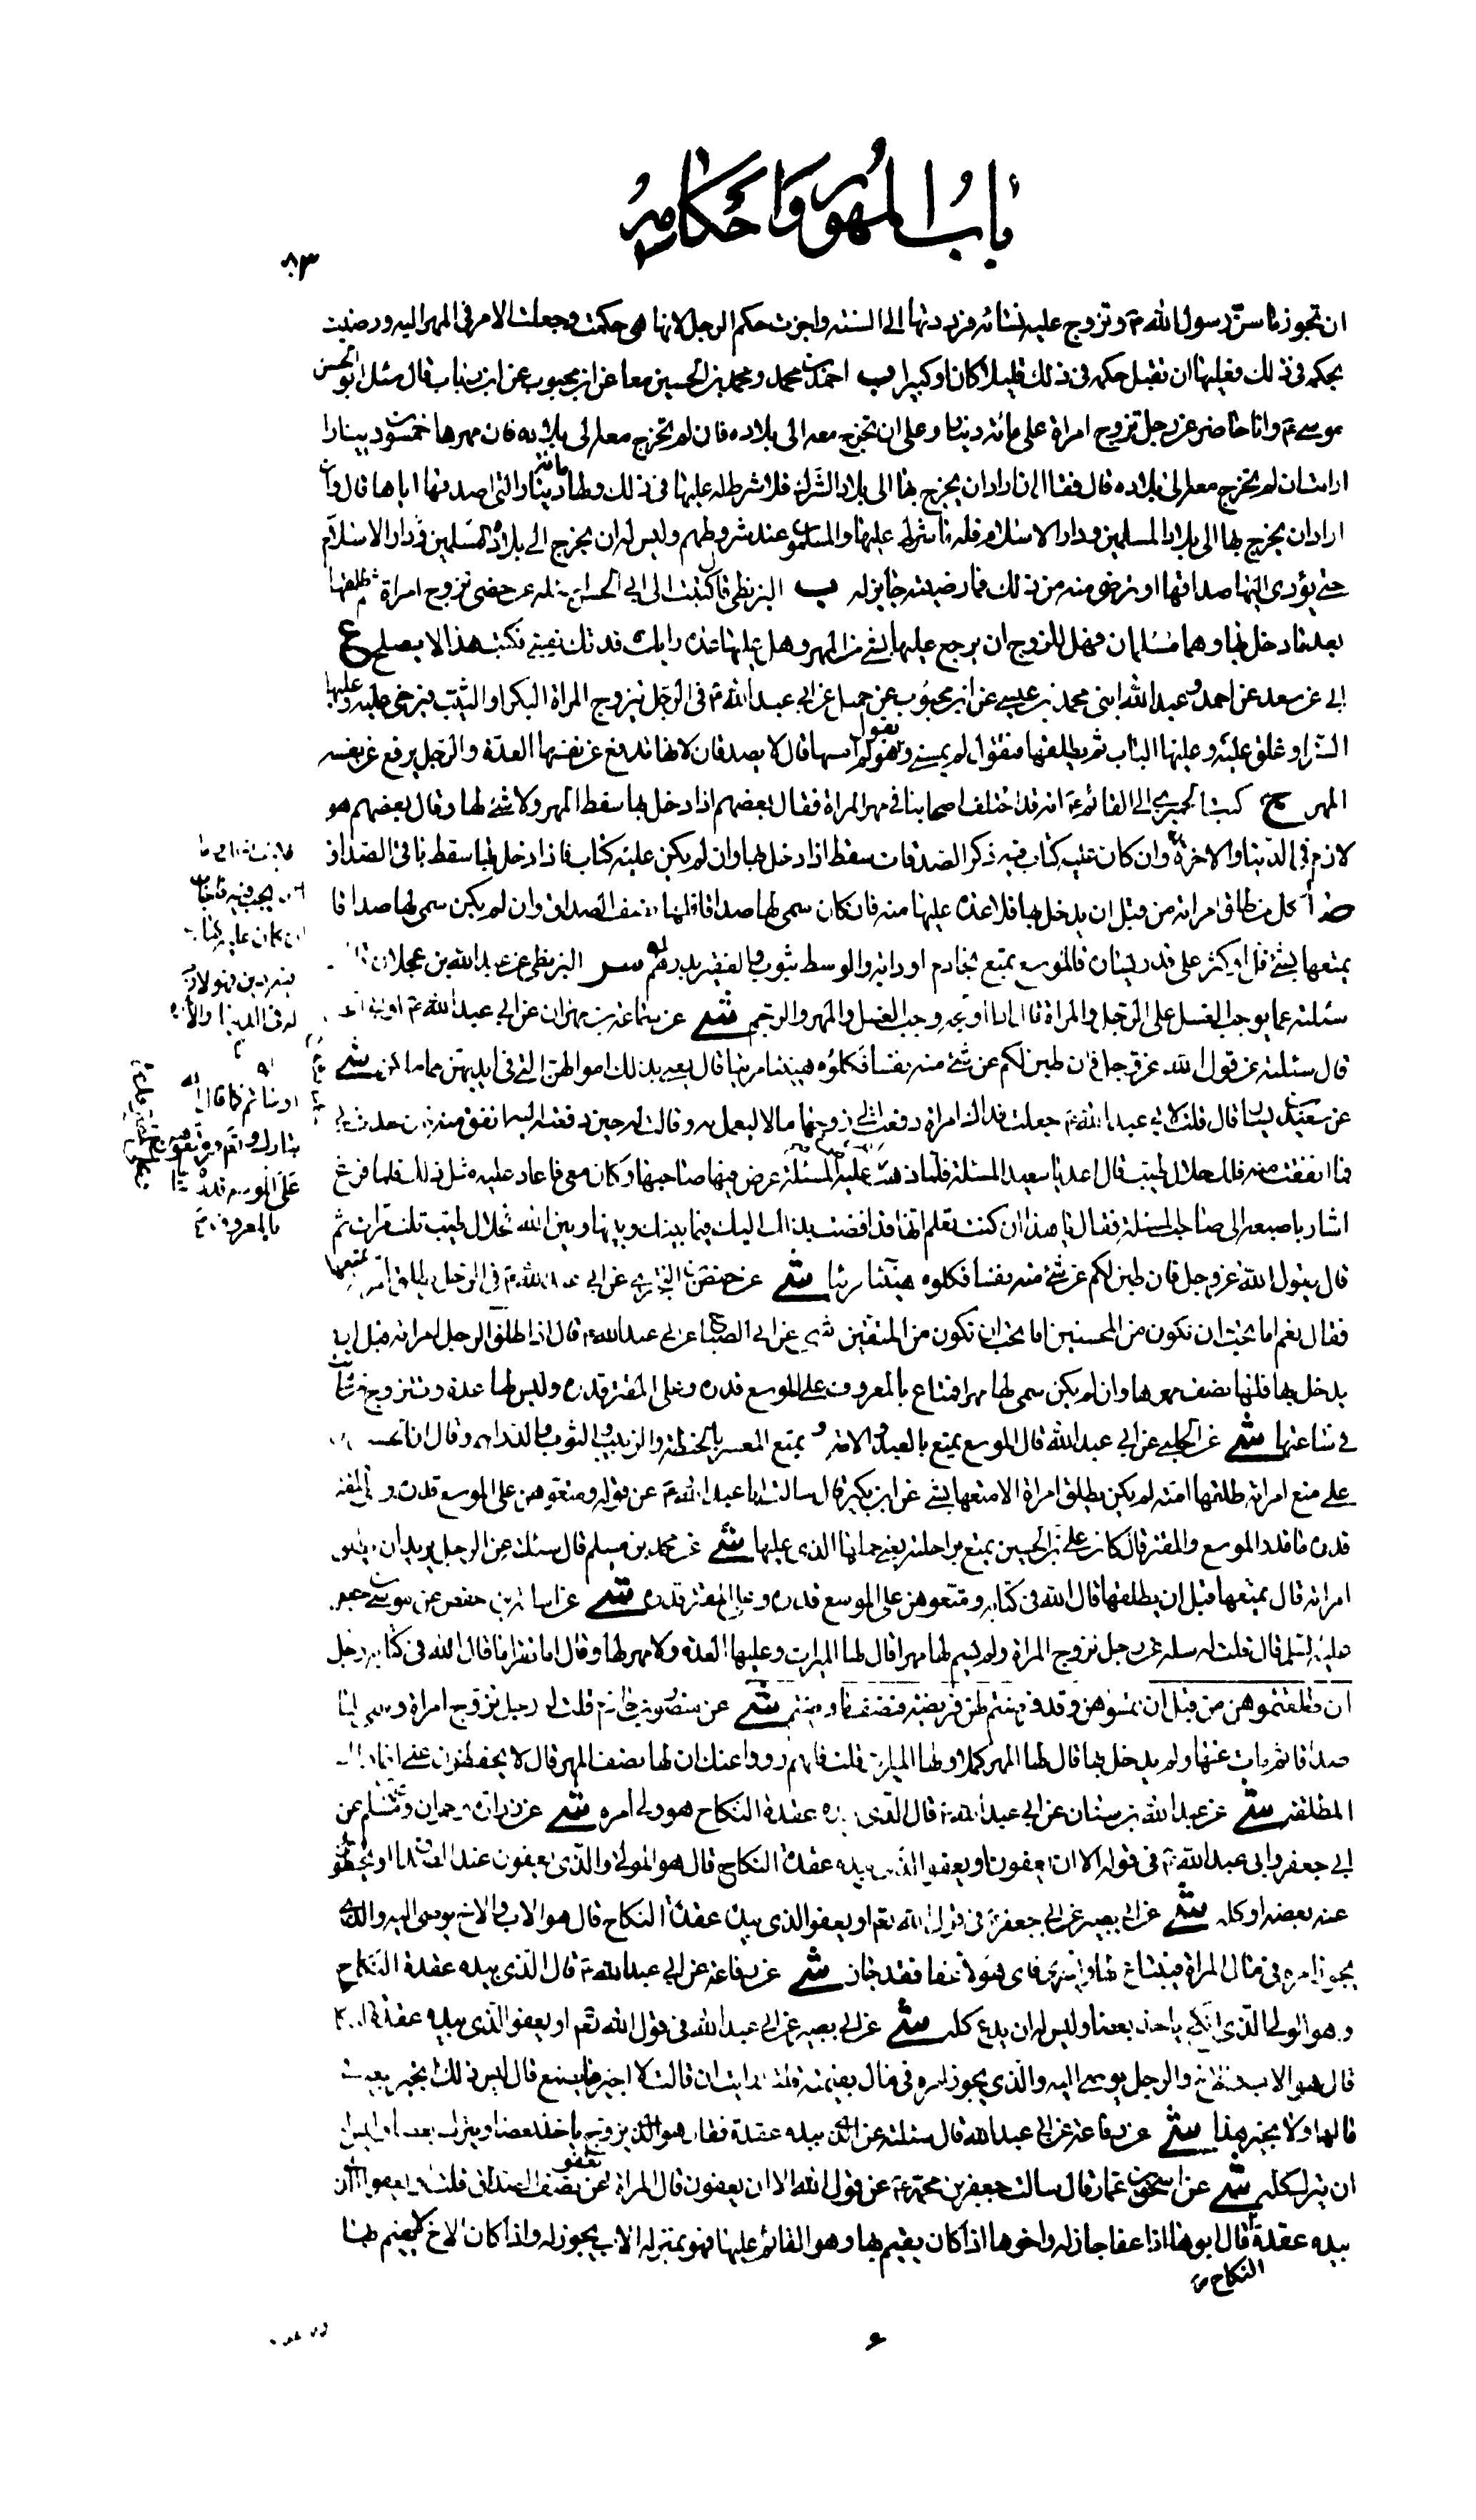 باب المهور واحكامه
٨٣
ان تجوز ما سنّ رسول الله ص وتزوج عليه نسائه فرددتها الى السنته واجزت حكم الرجل لانها هى حكمت وجعلت الامر فى المهر اليه ورضيت
بحكمه فى ذلك فعليها ان تقبل حكمه فى ذلك قليلا كان او كبيرا يب احمد بن محمد ومحمد بن الحسين معا عن ابن محبوب عن ابن رئاب قال سئل ابو الحسن
موسى ع وانا حاضر عن رجل تزوج امراة على مائة دينار وعلى ان تخرج معه الى بلاده فان لم تخرج معه الى بلاده فان مهرها خمسون دينارا
ارايت ان لم تخرج معه الى بلاده قال فقال ان اراد ان يخرج بها الى بلاد الشرك فلا شرط له عليها فى ذلك ولها مائة دينار التى اصدقها اياها قال وان
اراد ان يخرج بها الى بلاد المسلمين ودار الاسلام فله ما شرط عليها والمسلمون عند شروطهم وليس له ان يخرج الى بلاد المسلمين ودار الاسلام
حتى يؤدى اليها صداقها او ترضى منه من ذلك فما رضيته جايز له يب البزنطى قال كتبت الى ابى الحسن ع خصى تزوج امراة ثم طلقها
بعد ما دخل بها وهما مسلمان فهل للزوج ان يرجع عليها بشى من المهر وهل عليها عدة رايك فدتك نفسى فكتب هذا لا يصلح ع
ابى عن سعد عن احمد وعبد الله ابنى محمد بن عيسى عن ابن محبوب عن جميل عن ابى عبد الله ع فى الرجل تزوج المراة البكر او الثيب فيرخى عليه وعليها
الستر او غلق عليه وعليها الباب ثم يطلقها فتقول لم يمسنى ويقول هو لم امسها قال لا يصدقان لانها تدفع عن نفسها العدة والرجل يرفع عن نفسه
المهر ج كتب الحميرى الى القائم ع انه قد اختلف اصحابنا فى مهر المراة فقال بعضهم اذا دخل بها سقط المهر ولا شى لها وقال بعضهم هو
لازم فى الدنيا والاخرة وان كان عليه كتاب فيه ذكر الصدقات سقط اذا دخل بها وان لم يكن عليه كتاب فاذا دخل بها سقط باقى الصداق
ضا كل من طلق امراته من قبل ان يدخل بها فلا عدة عليها منه فان كان سمى لها صداقا فلها نصف الصداق وان لم يكن سمى لها صداقا
يمتعها بشى قل او كثر على قدر يساره فالموسع يمتع بخادم او دابة والوسط بثوب والفقير بدرهم سر البزنطى عن عبد الله بن عجلان
سئلته عما يوجب الغسل على الرجل والمراة فقال اذا اولجه وجب الغسل والمهر والرجم شى عن سماعة بن مهران عن ابى عبد الله ع
قال سئلته عن قول الله عز وجل فان طبن لكم عن شئ منه نفسا فكلوه هنيئا مريئا قال يعنى بذلك اموالهن التى فى ايديهن مما ملكن شى
عن سعيد بن يسار قال قلت لابى عبد الله ع جعلت فداك امراة دفعت الى زوجها مالا ليعمل به وقالت له حين دفعته اليه انفق منه
فما انفقت منه فلك حلال طيب قال اعد يا سعيد المسئلة فلما ذهبت عليه المسئلة عرض فيها صاحبها وكان معى فاعاد عليه مثل ذلك فلما فرغ
اشار باصبعه الى صاحب المسئلة فقال يا هذا ان كنت تعلم انها قد افضت بذلك اليك فيما بينك وبينها وبين الله فحلال طيب ثلث مرات ثم
قال يقول الله عز وجل فان طبن لكم عن شئ منه نفسا فكلوه هنيئا مريئا شى عن حفص بن البخترى عن ابى عبد الله ع فى الرجل يطلق امراته يمتعها
فقال نعم اما يحب ان يكون من المحسنين اما يحب ان يكون من المتقين شى عن ابى الصباح عن ابى عبد الله ع قال اذا طلق الرجل امراته قبل ان
يدخل بها فلها نصف مهرها وان لم يكن سمى لها مهرا فمتاع بالمعروف على الموسع قدره وعلى المقتر قدره وليس لها عدة وتتزوج من شائت
فى ساعتها شى عن الحلبى عن ابى عبد الله قال الموسع يمتع بالعبد والامة ويمتع المعسر بالحنطة والزبيب والثوب والدراهم وقال ان الحسن بن
على متع امراته طلقها امته لم يكن يطلق امراة الا متعها بشى عن ابن بكير قال سالت ابا عبد الله ع عن قوله ومتعوهن على الموسع قدره وعلى المقتر
قدره ما قدر الموسع والمقتر قال كان على بن الحسين يمتع براحلته يعنى حملها الذى عليها شى عن محمد بن مسلم قال سئلته عن الرجل يريد ان يطلق
امراته قال يمتعها قبل ان يطلقها قال الله فى كتابه ومتعوهن على الموسع قدره وعلى المقتر قدره شى عن اسامة بن حفص عن موسى بن جعفر
عليه السلم قال قلت له سله عن رجل تزوج المراة ولم يسم لها مهرا قال لها الميراث وعليها العدة ولا مهر لها وقال اما تقرا ما قال الله فى كتابه
ان طلقتموهن من قبل ان تمسوهن وقد فرضتم لهن فريضة فنصف ما فرضتم شى عن منصور بن حازم قلت له رجل تزوج امراة وسمى لها
صداقا ثم مات عنها ولم يدخل بها قال لها المهر كملا ولها الميراث قلت فانهم رووا عنك ان لها نصف المهر قال لا يحفظون عنى انما ذلك
المطلقة شى عن عبد الله بن سنان عن ابى عبد الله ع قال الذى بيده عقدة النكاح هو ولى امره شى عن زرارة وحمران ومحمد بن مسلم عن
ابى جعفر وابى عبد الله ع فى قوله الا ان يعفون او يعفو الذى بيده عقدة النكاح قال هو الولى والذين يعفون عند الصداق او يحطون
عنه بعضه او كله شى عن ابى بصير عن ابى جعفر ع فى قول الله تعم او يعفو الذى بيده عقدة النكاح قال هو الاب والاخ والموصى اليه والذى
يجوز امره فى مال المراة فيبتاع لها ويشترى فاى هؤلاء عفا فقد جاز شى عن رفاعة عن ابى عبد الله ع قال الذى بيده عقدة النكاح
وهو الولى الذى انكح ياخذ بعضا وليس له ان يدع كله شى عن ابى بصير عن ابى عبد الله فى قول الله تعم او يعفو الذى بيده عقدة
قال هو الاب والاخ والرجل يوصى اليه والذى يجوز امره فى مال يقيمه قلت ارايت ان قالت لا اجيز ما يصنع قال ليس ذلك لها اتجيز بيعه فى
مالها ولا تجيز هذا شى عن رفاعة عن ابى عبد الله قال سئلته عن الذى بيده عقدة فقال هو الذى يزوج ياخذ بعضا ويترك بعضا وليس له
ان يترك كله شى عن اسحق بن عمار قال سالت جعفر بن محمد ع عن قول الله الا ان يعفون قال المراة تعفو عن نصف الصداق قلت او يعفو الذى
بيده عقدة النكاح قال ابوها اذا عفا جاز له واخوها اذا كان يقيم بها وهو القائم عليها فهو بمنزلة الاب يجوز له واذا كان الاخ لا يقيم بها